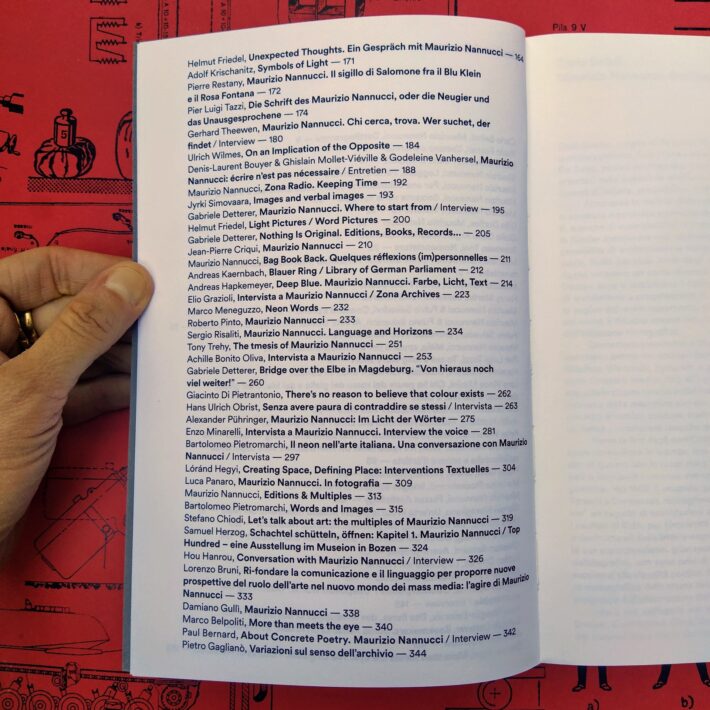 Pila 9 V
Helmut Friedel, Unexpected Thoughts. Ein Gespräch mit Maurizio Nannucci — 164
Adolf Krischanitz, Symbols of Light — 171
Pierre Restany, Maurizio Nannucci. Il sigillo di Salomone fra il Blu Klein
e il Rosa Fontana — 172
Pier Luigi Tazzi, Die Schrift des Maurizio Nannucci, oder die Neugier und
das Unausgesprochene — 174
Gerhard Theewen, Maurizio Nannucci. Chi cerca, trova. Wer suchet, der
findet / Interview — 180
Ulrich Wilmes, On an Implication of the Opposite — 184
Denis-Laurent Bouyer & Ghislain Mollet-Viéville & Godeleine Vanhersel, Maurizio
Nannucci: écrire n'est pas nécessaire / Entretien — 188
Maurizio Nannucci, Zona Radio. Keeping Time — 192
Jyrki Simovaara, Images and verbal images — 193
Gabriele Detterer, Maurizio Nannucci. Where to start from / Interview — 195
Helmut Friedel, Light Pictures / Word Pictures — 200
Gabriele Detterer, Nothing Is Original. Editions, Books, Records... — 205
Jean-Pierre Criqui, Maurizio Nannucci — 210
Maurizio Nannucci, Bag Book Back. Quelques réflexions (im)personnelles — 211
Andreas Kaernbach, Blauer Ring / Library of German Parliament — 212
Andreas Hapkemeyer, Deep Blue. Maurizio Nannucci. Farbe, Licht, Text — 214
Elio Grazioli, Intervista a Maurizio Nannucci / Zona Archives — 223
Marco Meneguzzo, Neon Words — 232
Roberto Pinto, Maurizio Nannucci — 233
Sergio Risaliti, Maurizio Nannucci. Language and Horizons — 234
Tony Trehy, The tmesis of Maurizio Nannucci — 251
Achille Bonito Oliva, Intervista a Maurizio Nannucci — 253
Gabriele Detterer, Bridge over the Elbe in Magdeburg. "Von hieraus noch
viel weiter!" — 260
Giacinto Di Pietrantonio, There's no reason to believe that colour exists — 262
Hans Ulrich Obrist, Senza avere paura di contraddire se stessi / Intervista — 263
Alexander Pühringer, Maurizio Nannucci: Im Licht der Wörter — 275
Enzo Minarelli, Intervista a Maurizio Nannucci. Interview the voice — 281
Bartolomeo Pietromarchi, Il neon nell'arte italiana. Una conversazione con Maurizio
Nannucci / Intervista — 297
Lóránd Hegyi, Creating Space, Defining Place: Interventions Textuelles — 304
Luca Panaro, Maurizio Nannucci. In fotografia — 309
Maurizio Nannucci, Editions & Multiples — 313
Bartolomeo Pietromarchi, Words and Images — 315
Stefano Chiodi, Let's talk about art: the multiples of Maurizio Nannucci — 319
Samuel Herzog, Schachtel schütteln, öffnen: Kapitel 1. Maurizio Nannucci / Top
Hundred – eine Ausstellung im Museion in Bozen — 324
Hou Hanrou, Conversation with Maurizio Nannucci / Interview — 326
Lorenzo Bruni, Ri-fondare la comunicazione e il linguaggio per proporre nuove
prospettive del ruolo dell'arte nel nuovo mondo dei mass media: l'agire di Maurizio
Nannucci — 333
Damiano Gullì, Maurizio Nannucci — 338
Marco Belpoliti, More than meets the eye — 340
Paul Bernard, About Concrete Poetry. Maurizio Nannucci / Interview — 342
Pietro Gaglianò, Variazioni sul senso dell'archivio — 344
a)
b)